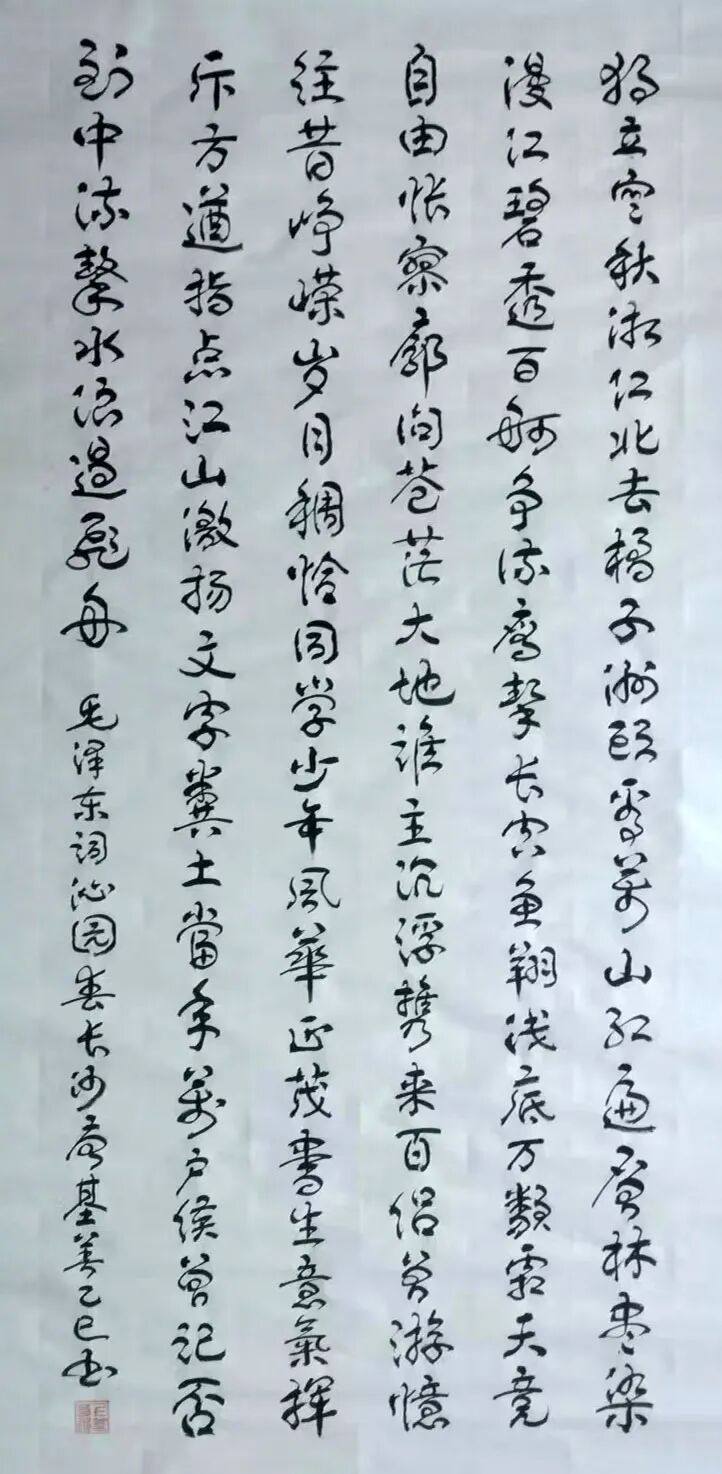 独立寒秋湘江北去橘子洲头看萬山红遍层林尽染
漫江碧透百舸争流鹰擊长空鱼翔浅底万類霜天竞
自由怅寥廓问苍茫大地谁主沉浮携来百侣曾游憶
往昔峥嵘岁月稠恰同学少年风華正茂書生意氣揮
斥方遒指点江山激扬文字糞土當年萬户侯曾记否
到中流擊水浪遏飞舟 毛泽东词沁园春长沙 基善乙巳书